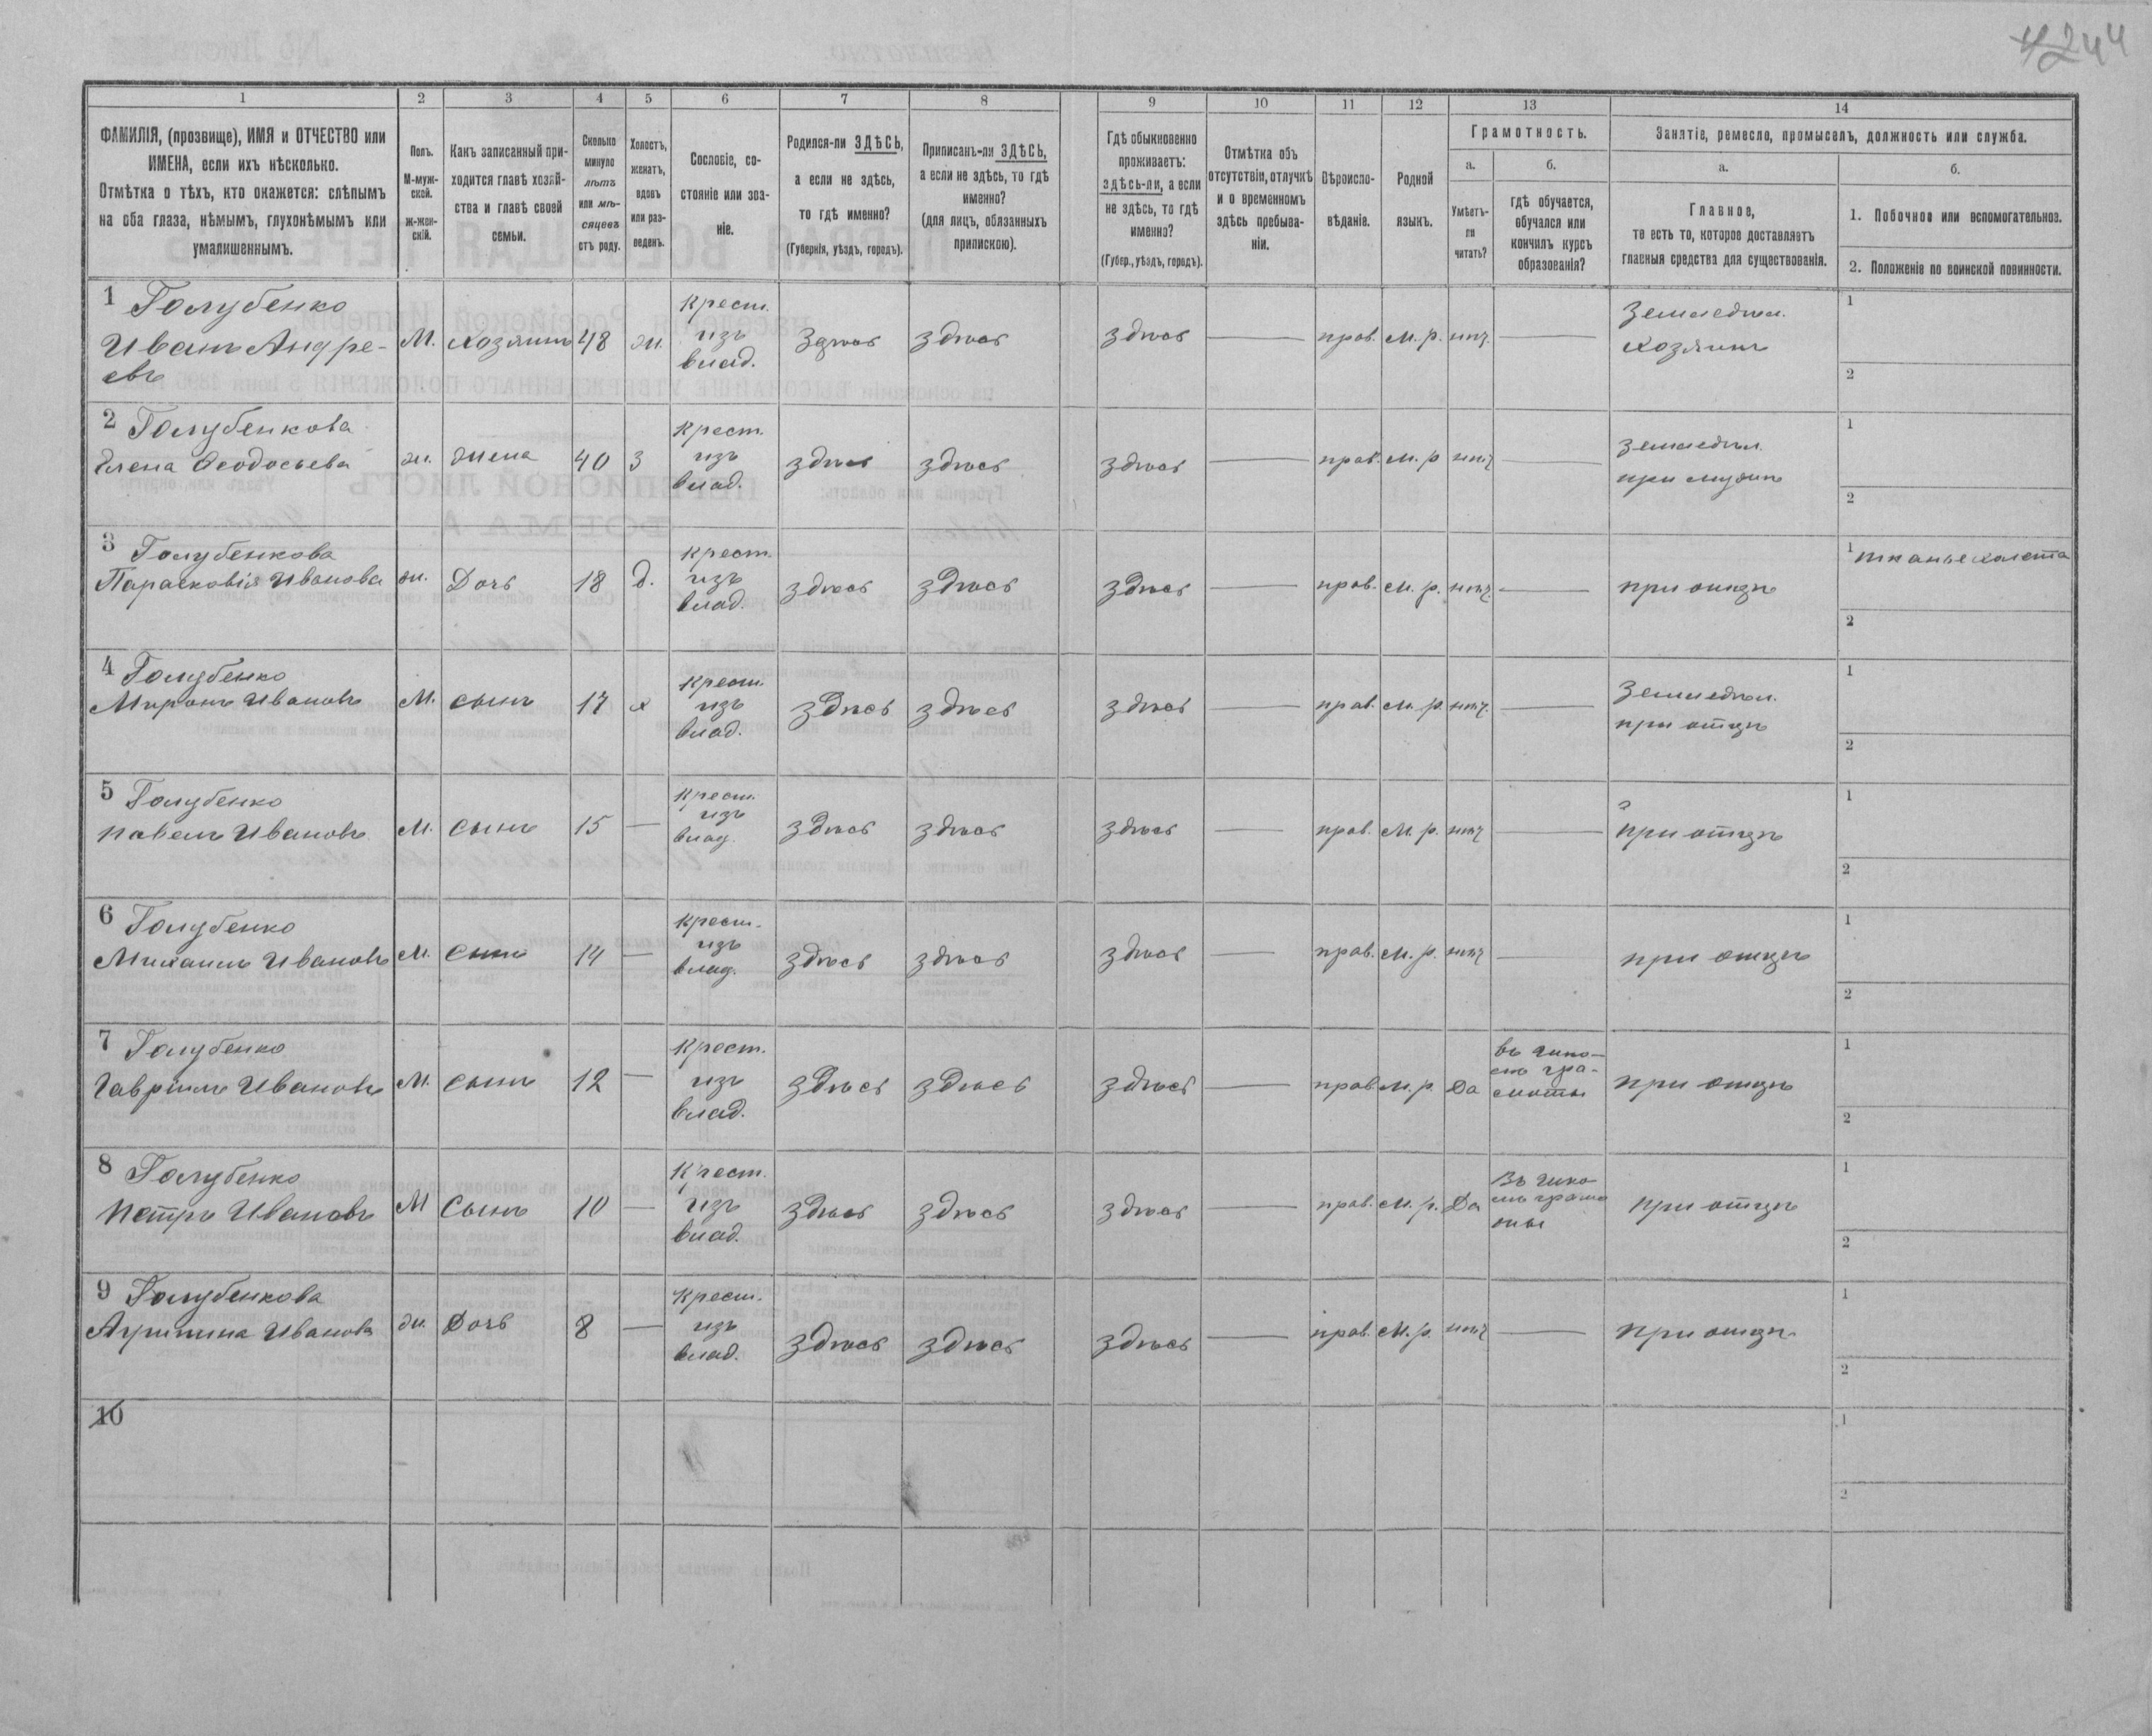 244
1 2 3 4 5 6 7 8 9 10 11 12 13 14
ФАМИЛІЯ, (прозвище), ИМЯ и ОТЧЕСТВО или
ИМЕНА, если ихъ нѣсколько.
Отмѣтка о тѣхъ, кто окажется: слѣпымъ
на оба глаза, нѣмымъ, глухонѣмымъ или
умалишеннымъ.
Полъ.
М-муж-
ской.
Ж-жен-
скій.
Какъ записанный при-
ходится главѣ хозяй-
ства и главѣ своей
семьи.
Сколько
минуло
лѣтъ
или мѣ-
сяцевъ
отъ роду.
Холостъ,
женатъ,
вдовъ
или раз-
веденъ.
Сословіе, со-
стояніе или зва-
ніе.
Родился-ли ЗДѢСЬ,
а если не здѣсь,
то гдѣ именно?
(Губернія, уѣздъ, городъ).
Приписанъ-ли ЗДѢСЬ,
а если не здѣсь, то гдѣ
именно?
(для лицъ, обязанныхъ
припискою).
Гдѣ обыкновенно
проживаетъ:
здѣсь-ли, а если
не здѣсь, то гдѣ
именно?
(Губер., уѣздъ, городъ).
Отмѣтка объ
отсутствіи, отлучкѣ
и о временномъ
здѣсь пребыва-
ніи.
Вѣроиспо-
вѣданіе.
Родной
языкъ.
Грамотность.
а.
Умѣетъ-
ли
читать?
б.
гдѣ обучается,
обучался или
кончилъ курсъ
образованія?
Занятіе, ремесло, промыселъ, должность или служба.
а.
Главное,
то есть то, которое доставляетъ
главныя средства для существованія.
б.
1. Побочное или вспомогательное.
2. Положеніе по воинской повинности.
1 Голубенко
Иванъ Андре-
евъ
М. хозяинъ 48 ж. Крест.
изъ
влад.
Здѣсь здѣсь здѣсь — прав. М. р. нѣт. —
Земледѣл.
хозяинъ
1
2
2 Голубенкова
Елена Ѳеодосьева
ж. жена 40 з Крест.
изъ
влад.
здѣсь здѣсь здѣсь — прав. М. р нѣт —
земледѣл.
при мужѣ
1
2
3 Голубенкова
Парасковія Иванова
ж. Дочь 18 д. Крест.
изъ
влад.
здѣсь здѣсь здѣсь — прав. М. р. нѣт. —
при отцѣ
1 тканье холста
2
4 Голубенко
Миронъ Ивановъ
М. сынъ 17 х Крест.
изъ
влад.
здѣсь здѣсь здѣсь — прав. М. р. нѣт. —
Земледѣл.
при отцѣ
1
2
5 Голубенко
Павелъ Ивановъ
М. сынъ 15 — Крест.
изъ
влад.
здѣсь здѣсь здѣсь — прав. М. р. нѣт —
при отцѣ
1
2
6 Голубенко
Михаилъ Ивановъ
М. сынъ 14 — Крест.
изъ
влад.
здѣсь здѣсь здѣсь — прав. М. р. нѣт —
при отцѣ
1
2
7 Голубенко
Гавріилъ Ивановъ
М. сынъ 12 — Крест.
изъ
влад.
здѣсь здѣсь здѣсь — прав М. р. Да
въ шко-
лѣ гра-
моты
при отцѣ
1
2
8 Голубенко
Петръ Ивановъ
М Сынъ 10 — Крест.
изъ
влад.
здѣсь здѣсь здѣсь — прав. М. р. Да
Въ шко-
лѣ грамо
ты
при отцѣ
1
2
9 Голубенкова
Агрипина Иванова
ж. Дочь 8 — Крест.
изъ
влад.
здѣсь здѣсь здѣсь — прав. М. р. нѣт —
при отцѣ
1
2
10
1
2